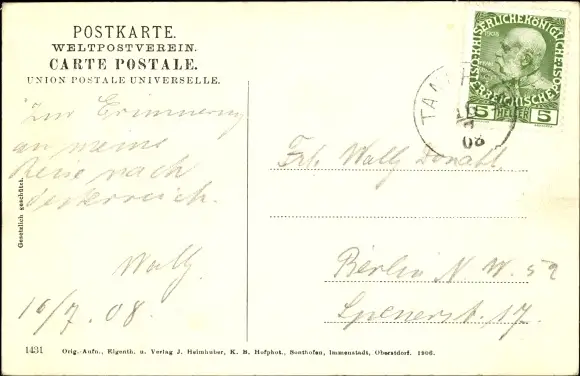 POSTKARTE.
WELTPOSTVEREIN.
CARTE POSTALE.
UNION POSTALE UNIVERSELLE.
Zur Erinnerung
an meine
Reise nach
Oesterreich.
Wally.
16/7. 08.
Gesetzlich geschützt.
KAISERLICHE KÖNIGLICHE
ÖSTERREICHISCHE POST
1908
5 HELLER 5
08
Frl. Wally Donath
Berlin N. W. 52
Spenerst. 17.
1431 Orig.-Aufn., Eigenth. u. Verlag J. Heimhuber, K. B. Hofphot., Sonthofen, Immenstadt, Oberstdorf. 1906.